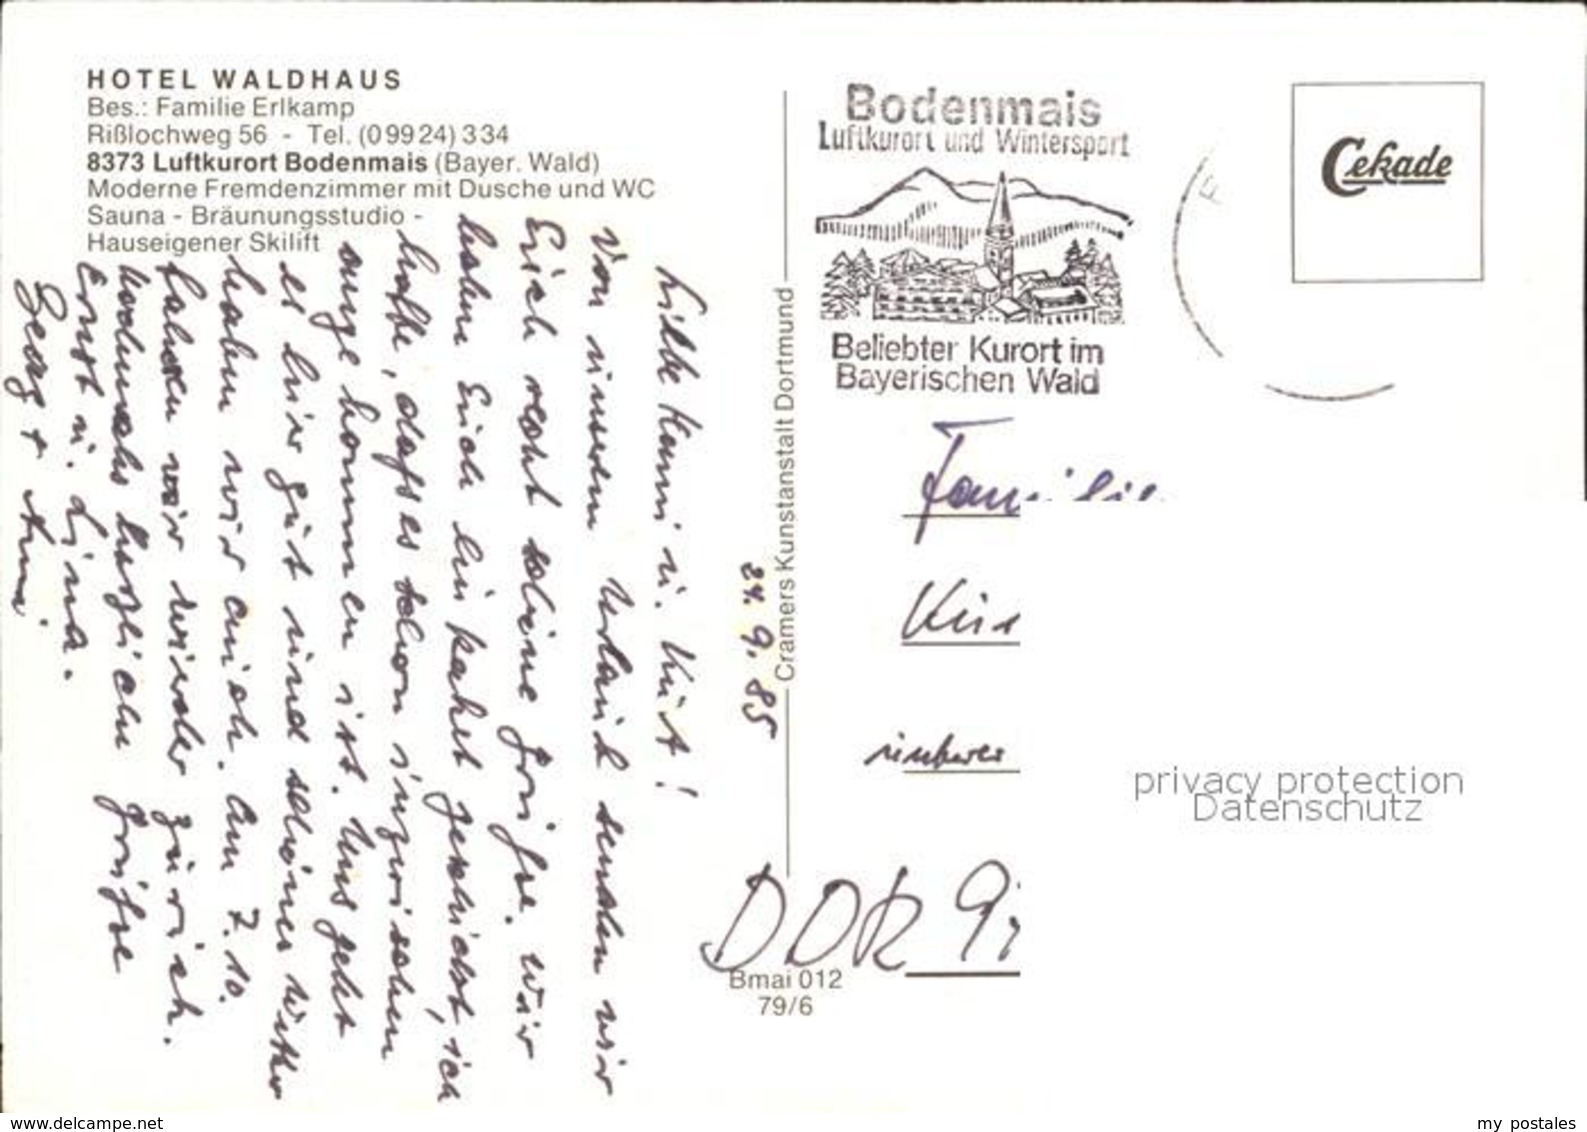 HOTEL WALDHAUS
Bes.: Familie Erlkamp
Rißlochweg 56 - Tel. (09924) 334
8373 Luftkurort Bodenmais (Bayer. Wald)
Moderne Fremdenzimmer mit Dusche und WC
Sauna - Bräunungsstudio -
Hauseigener Skilift
24. 9. 85
Liebe Hanni u. Kurt!
Von unserem Urlaub senden wir
Euch recht schöne Grüße. Wir
haben Euch ein Paket geschickt, ich
hoffe, daß es schon inzwischen
angekommen ist. Uns geht
es hier gut und schönes Wetter
haben wir auch. Am 7. 10.
fahren wir wieder zurück.
Nochmals herzliche Grüße
Ernst u. Lina.
Georg + Anni
Cramers Kunstanstalt Dortmund
Bodenmais
Luftkurort und Wintersport
Beliebter Kurort im
Bayerischen Wald
Cekade
Familie
Kur
DDR 9
Bmai 012
79/6
privacy protection
Datenschutz
www.delcampe.net
my postales